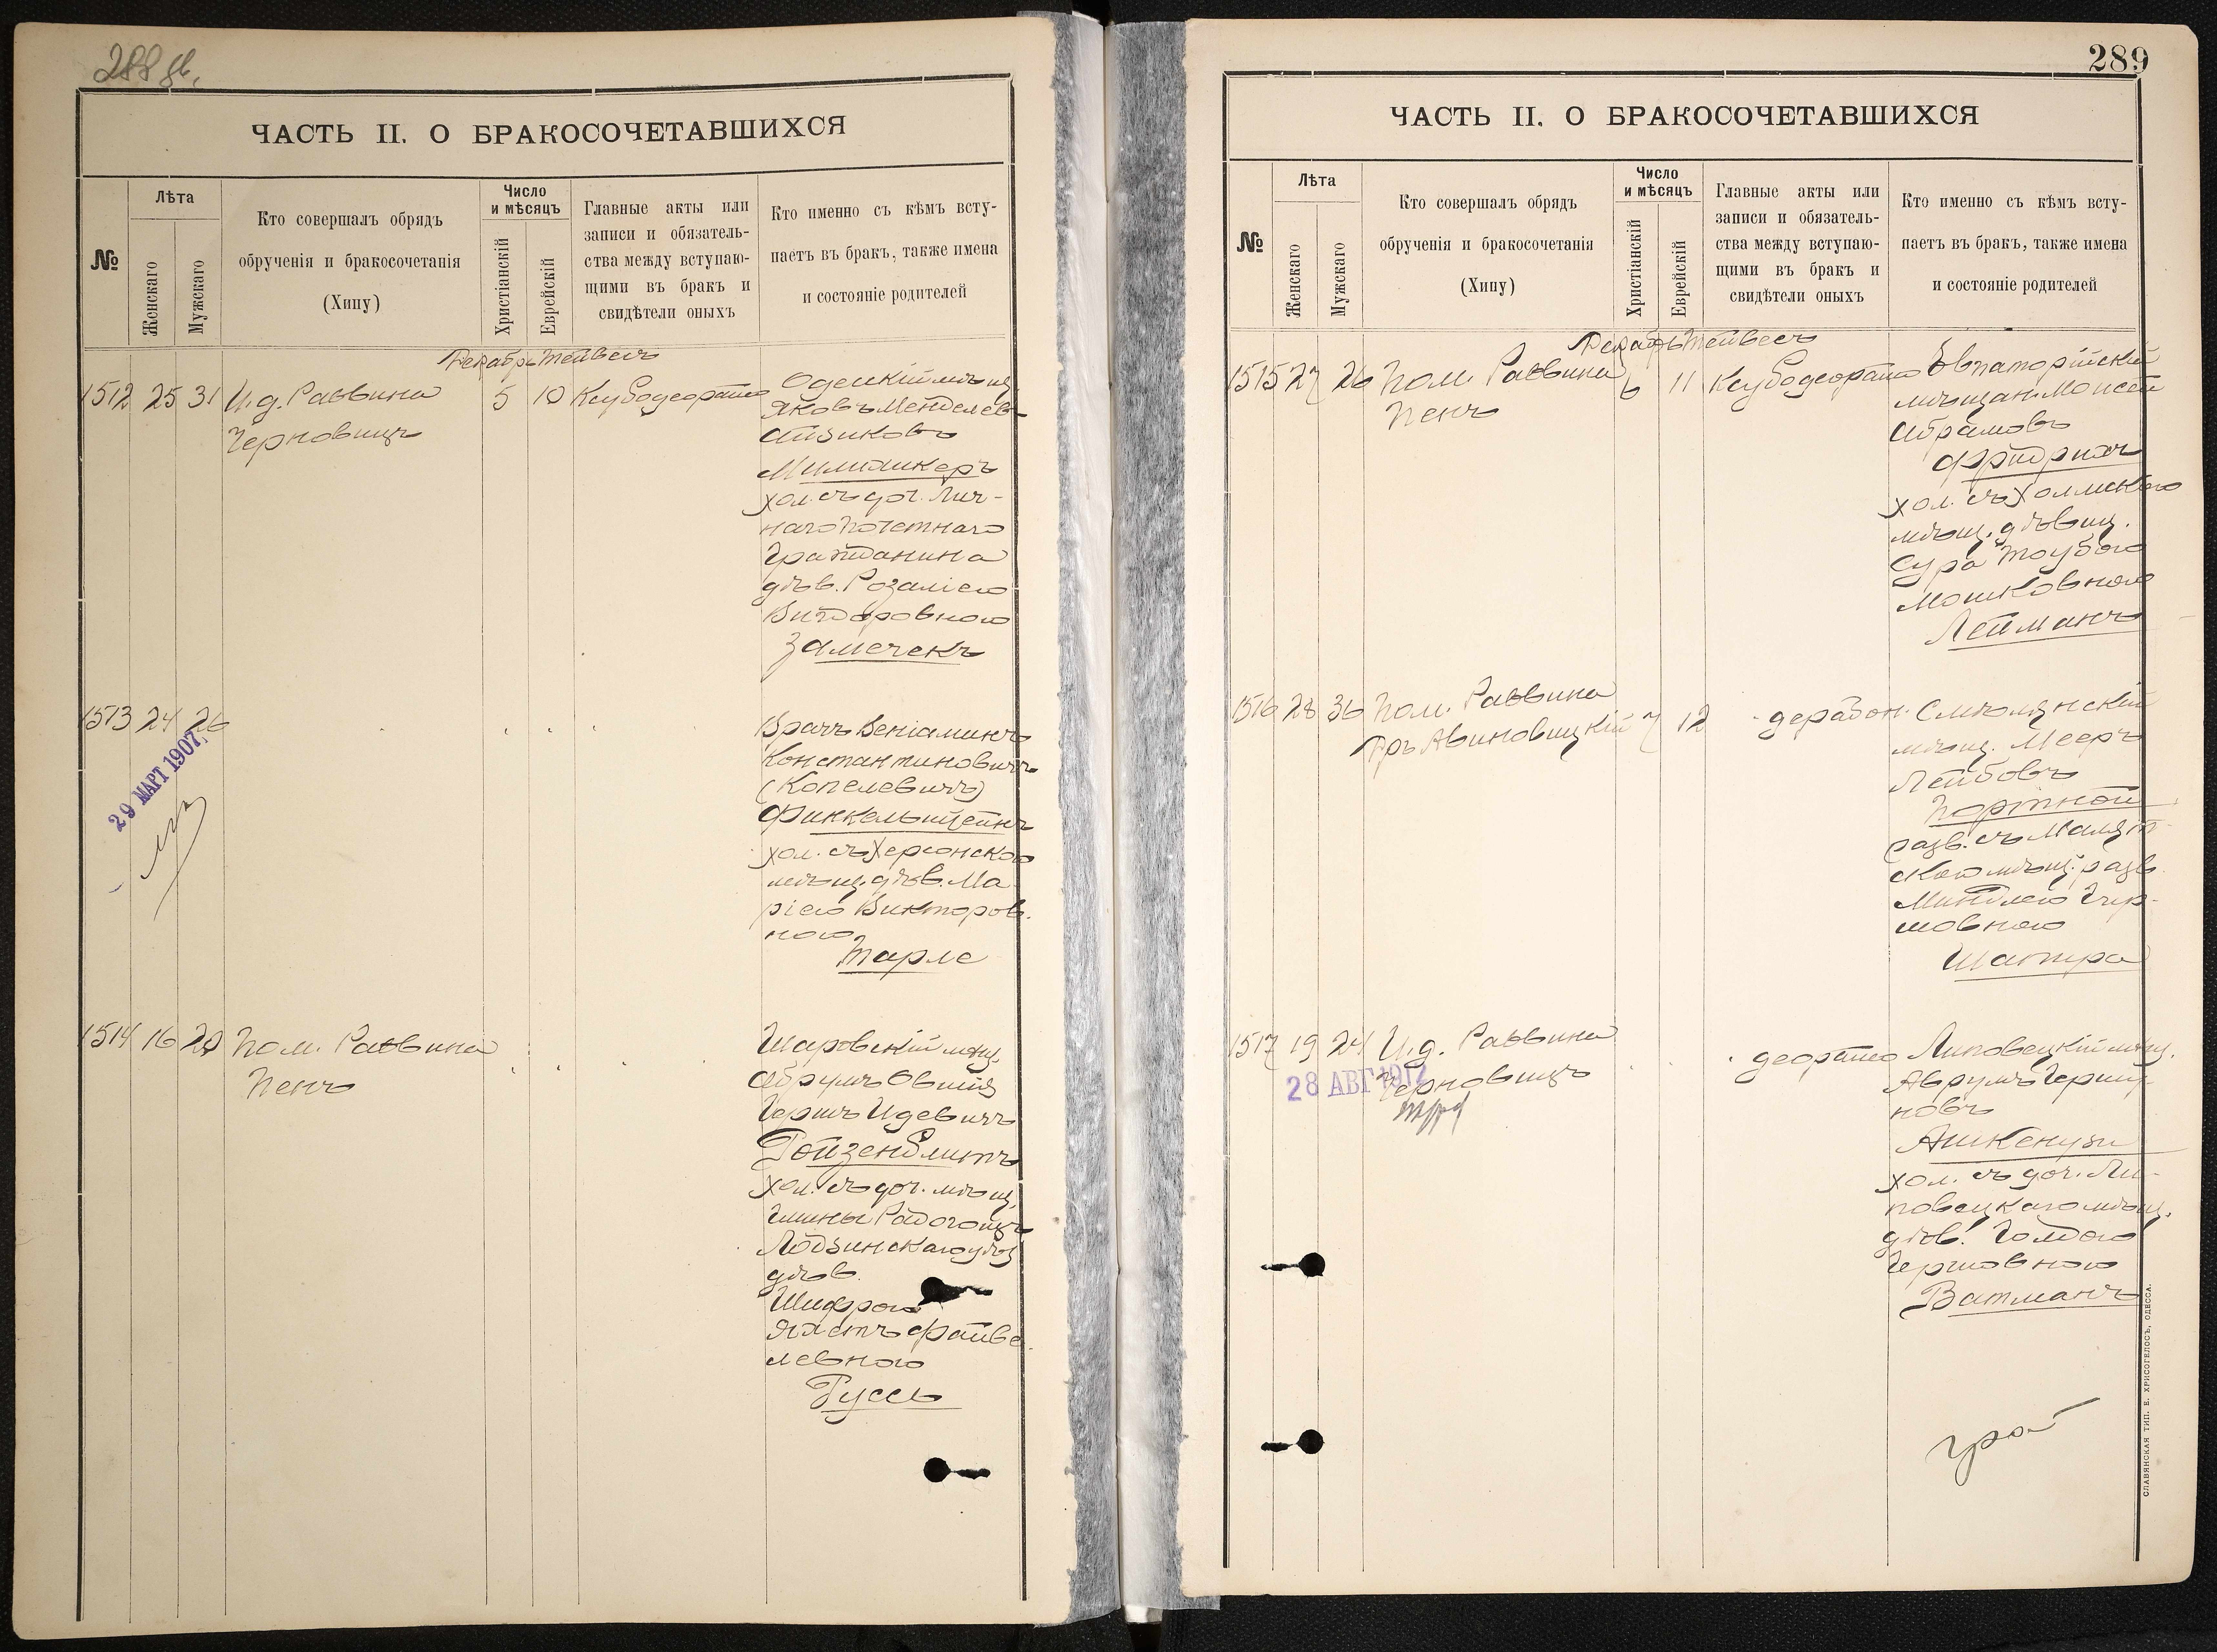 288 об.
ЧАСТЬ II. О БРАКОСОЧЕТАВШИХСЯ
№
Лѣта
Женскаго
Мужскаго
Кто совершалъ обрядъ
обрученія и бракосочетанія
(Хипу)
Число
и мѣсяцъ
Христіанскій
Еврейскій
Главные акты или
записи и обязатель-
ства между вступаю-
щими въ бракъ и
свидѣтели оныхъ
Кто именно съ кѣмъ всту-
паетъ въ бракъ, также имена
и состояніе родителей
Декабрь Тейвесъ
1512 25 31 И. д. Раввина
Черновицъ
5 10 Ксубодеорайсо
Одесскій мѣщ.
Яковъ Менделевъ-
Айзиковъ
Милиткеръ
хол. съ доч. Лич-
наго Почетнаго
Гражданина
дѣв. Розаліею
Вигдоровною
Замечекъ
1513 24 26
29 МАРТ 1907
Врачъ Веніаминъ
Константиновичъ
(Копелевичъ)
Финкельштейнъ
хол. съ Херсонскою
мѣщ. дѣв. Ма-
ріею Викторов-
ною
Тарле
1514 16 20 Пом. Раввина
Пенъ
Шаровскій мѣщ.
Абрумъ Овшія
Гершъ Идевичъ
Ройзенблитъ
хол. съ доч. мѣщ.
Гмины Радогощъ
Лодзинскаго уѣз
дѣв.
Шифрою
Яхетъ Файве-
левною
Руссъ
289
ЧАСТЬ II. О БРАКОСОЧЕТАВШИХСЯ
№
Лѣта
Женскаго
Мужскаго
Кто совершалъ обрядъ
обрученія и бракосочетанія
(Хипу)
Число
и мѣсяцъ
Христіанскій
Еврейскій
Главные акты или
записи и обязатель-
ства между вступаю-
щими въ бракъ и
свидѣтели оныхъ
Кто именно съ кѣмъ всту-
паетъ въ бракъ, также имена
и состояніе родителей
Декабрь Тейвесъ
1515 27 26 Пом. Раввина
Пенъ
6 11 Ксубодеорайсо
Евпаторійскій
мѣщан. Моисей
Абрамовъ
Фридрихъ
хол. съ Холмскою
мѣщ. дѣвиц.
Сура Таубою
Мошковною
Лейманъ
1516 28 36 Пом. Раввина
Дръ Авиновицкій
7 12 дерабон.
Смѣлянскій
мѣщ. Мееръ
Лейбовъ
Портной
разв. съ Малят-
скою мѣщ. разв.
Миндлею Гер-
шовною
Шапира
1517 19 24 И. д. Раввина
Черновицъ
28 АВГ 1912
деорайсо
Липовецкій мѣщ.
Аврумъ Герщу-
новъ
Ашкенузи
хол. съ доч. Ли-
повецкаго мѣщ.
дѣв. Голдою
Гершовною
Ватманъ
СЛАВЯНСКАЯ ТИП. Е. ХРИСОГЕЛОСЪ, ОДЕССА.